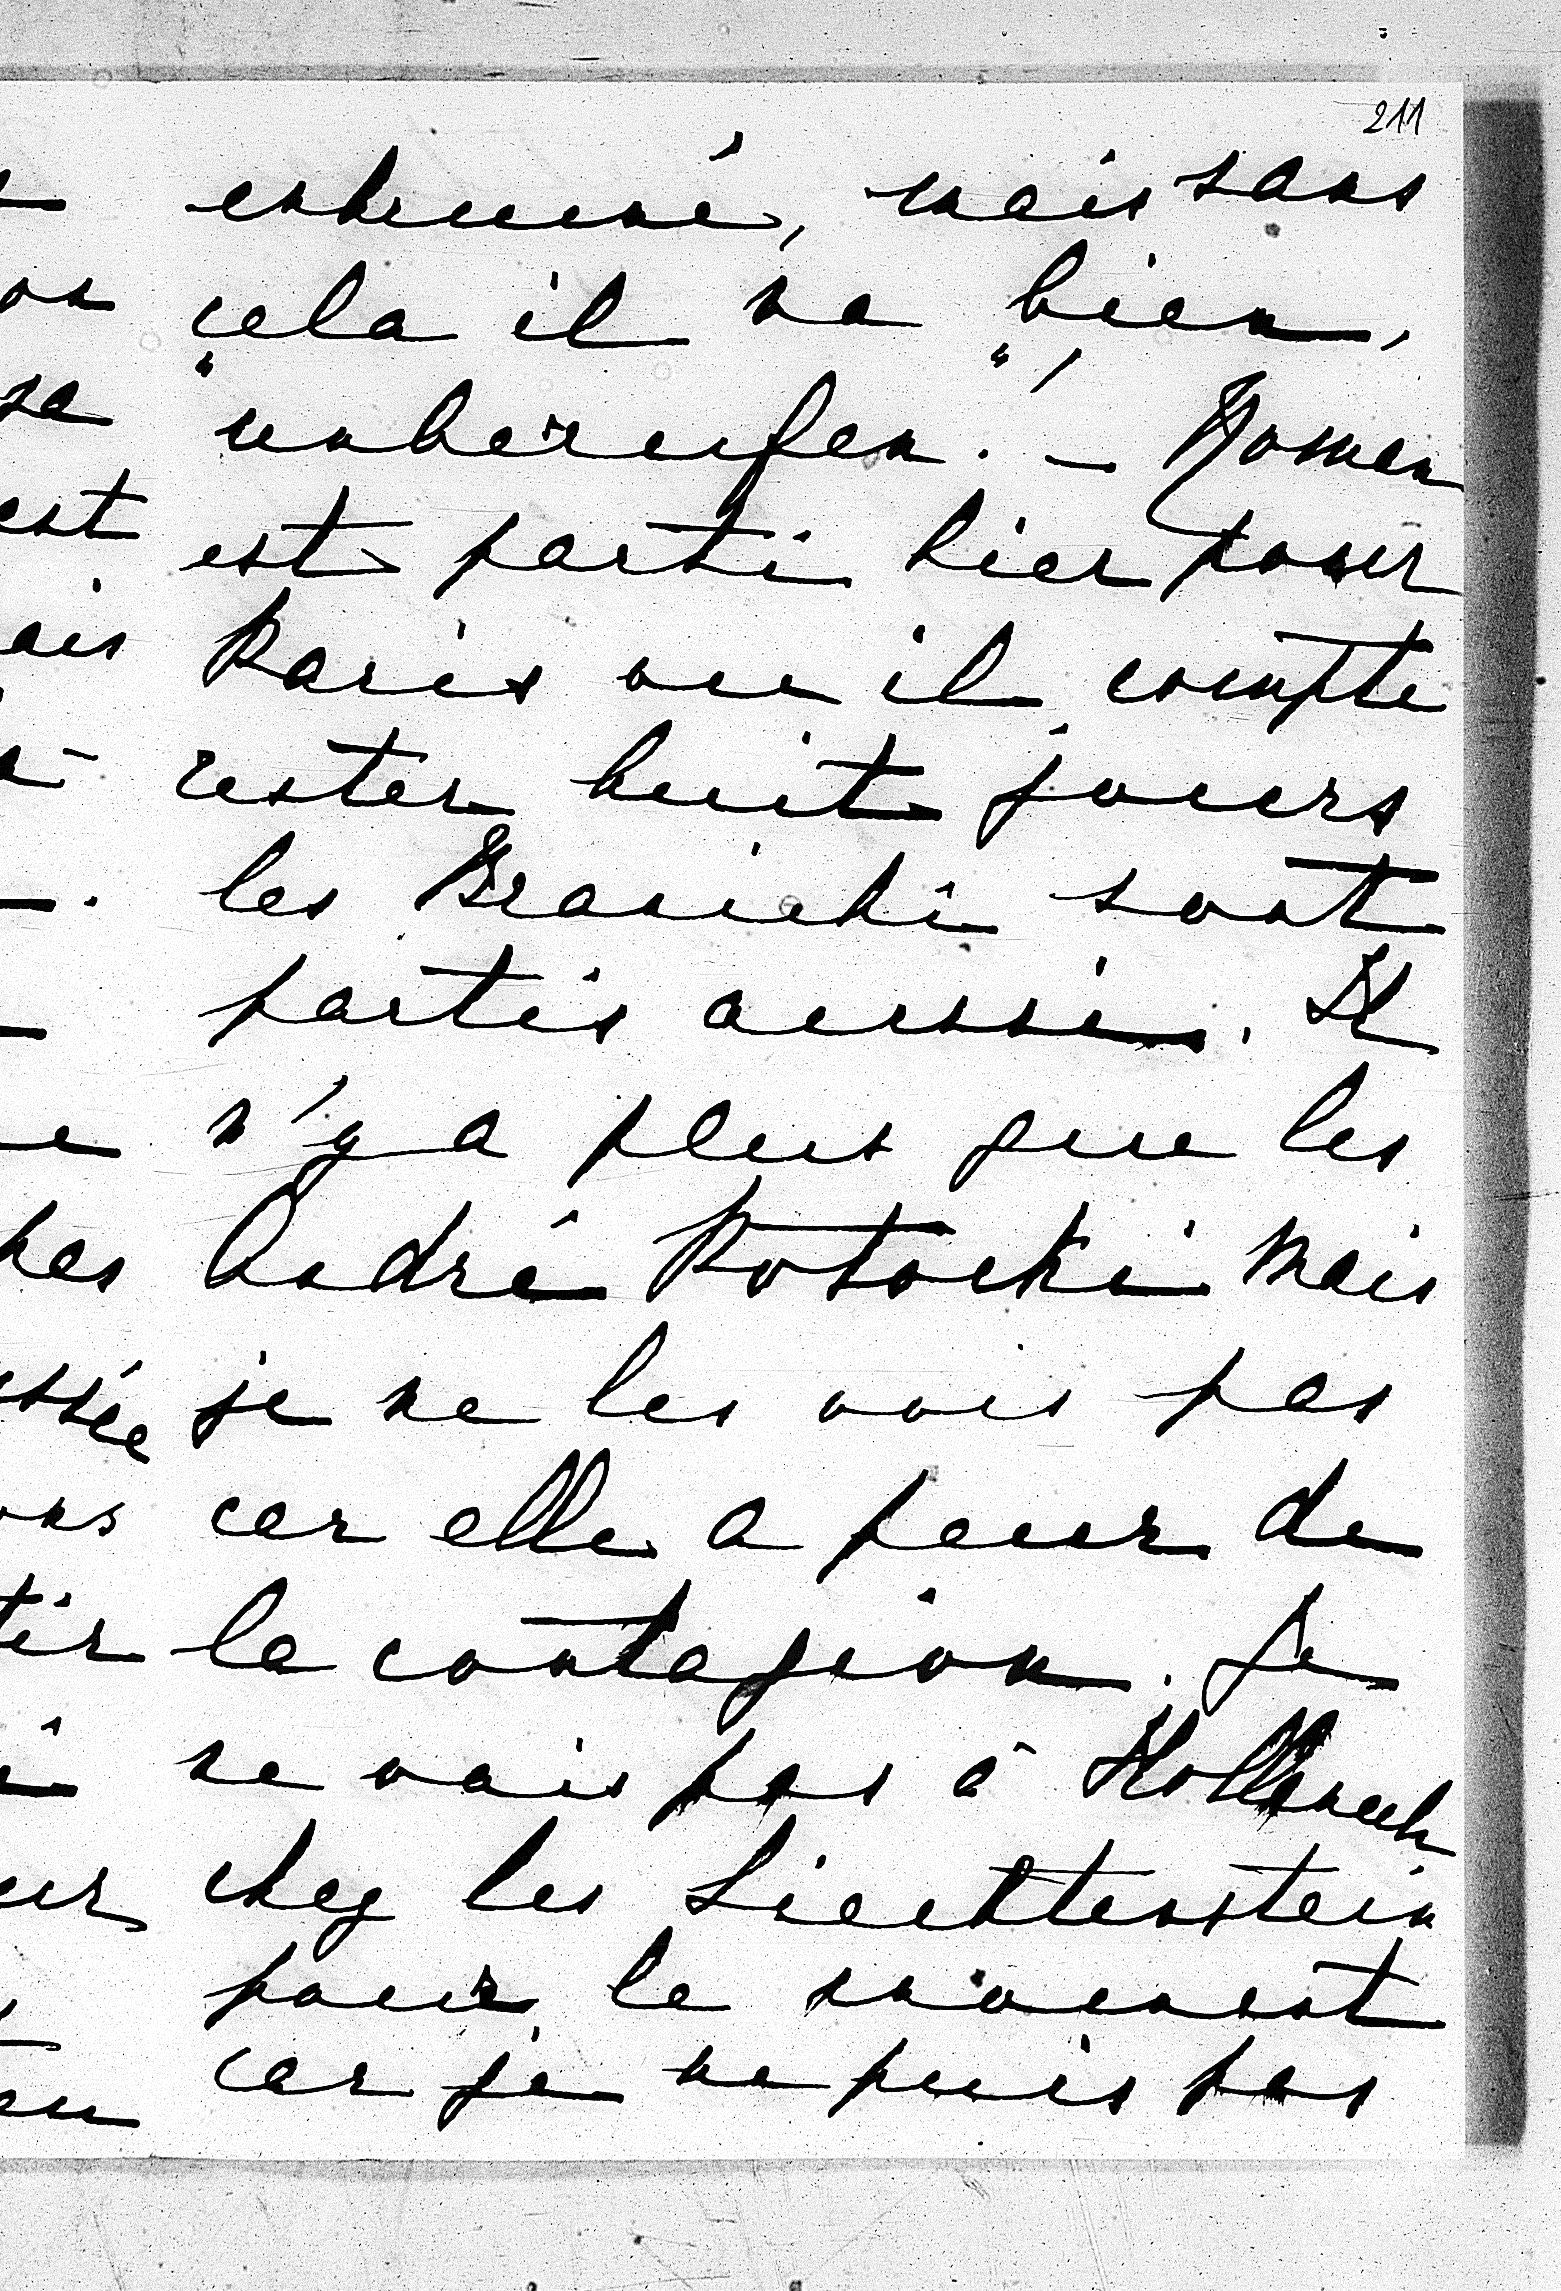 211
enrhumé, mais sans
cela il va bien,
"unberufen". — Roman
est parti hier pour
Paris ou il compte
rester huit jours
les Branicki sont
partis aussi. Il
n'y a plus que les
André Potocki mais
je ne les vois pas
car elle a peur de
la contagion. Je
ne vais pas à
chez les Liechtenstein
pour le moment
car je ne puis pas